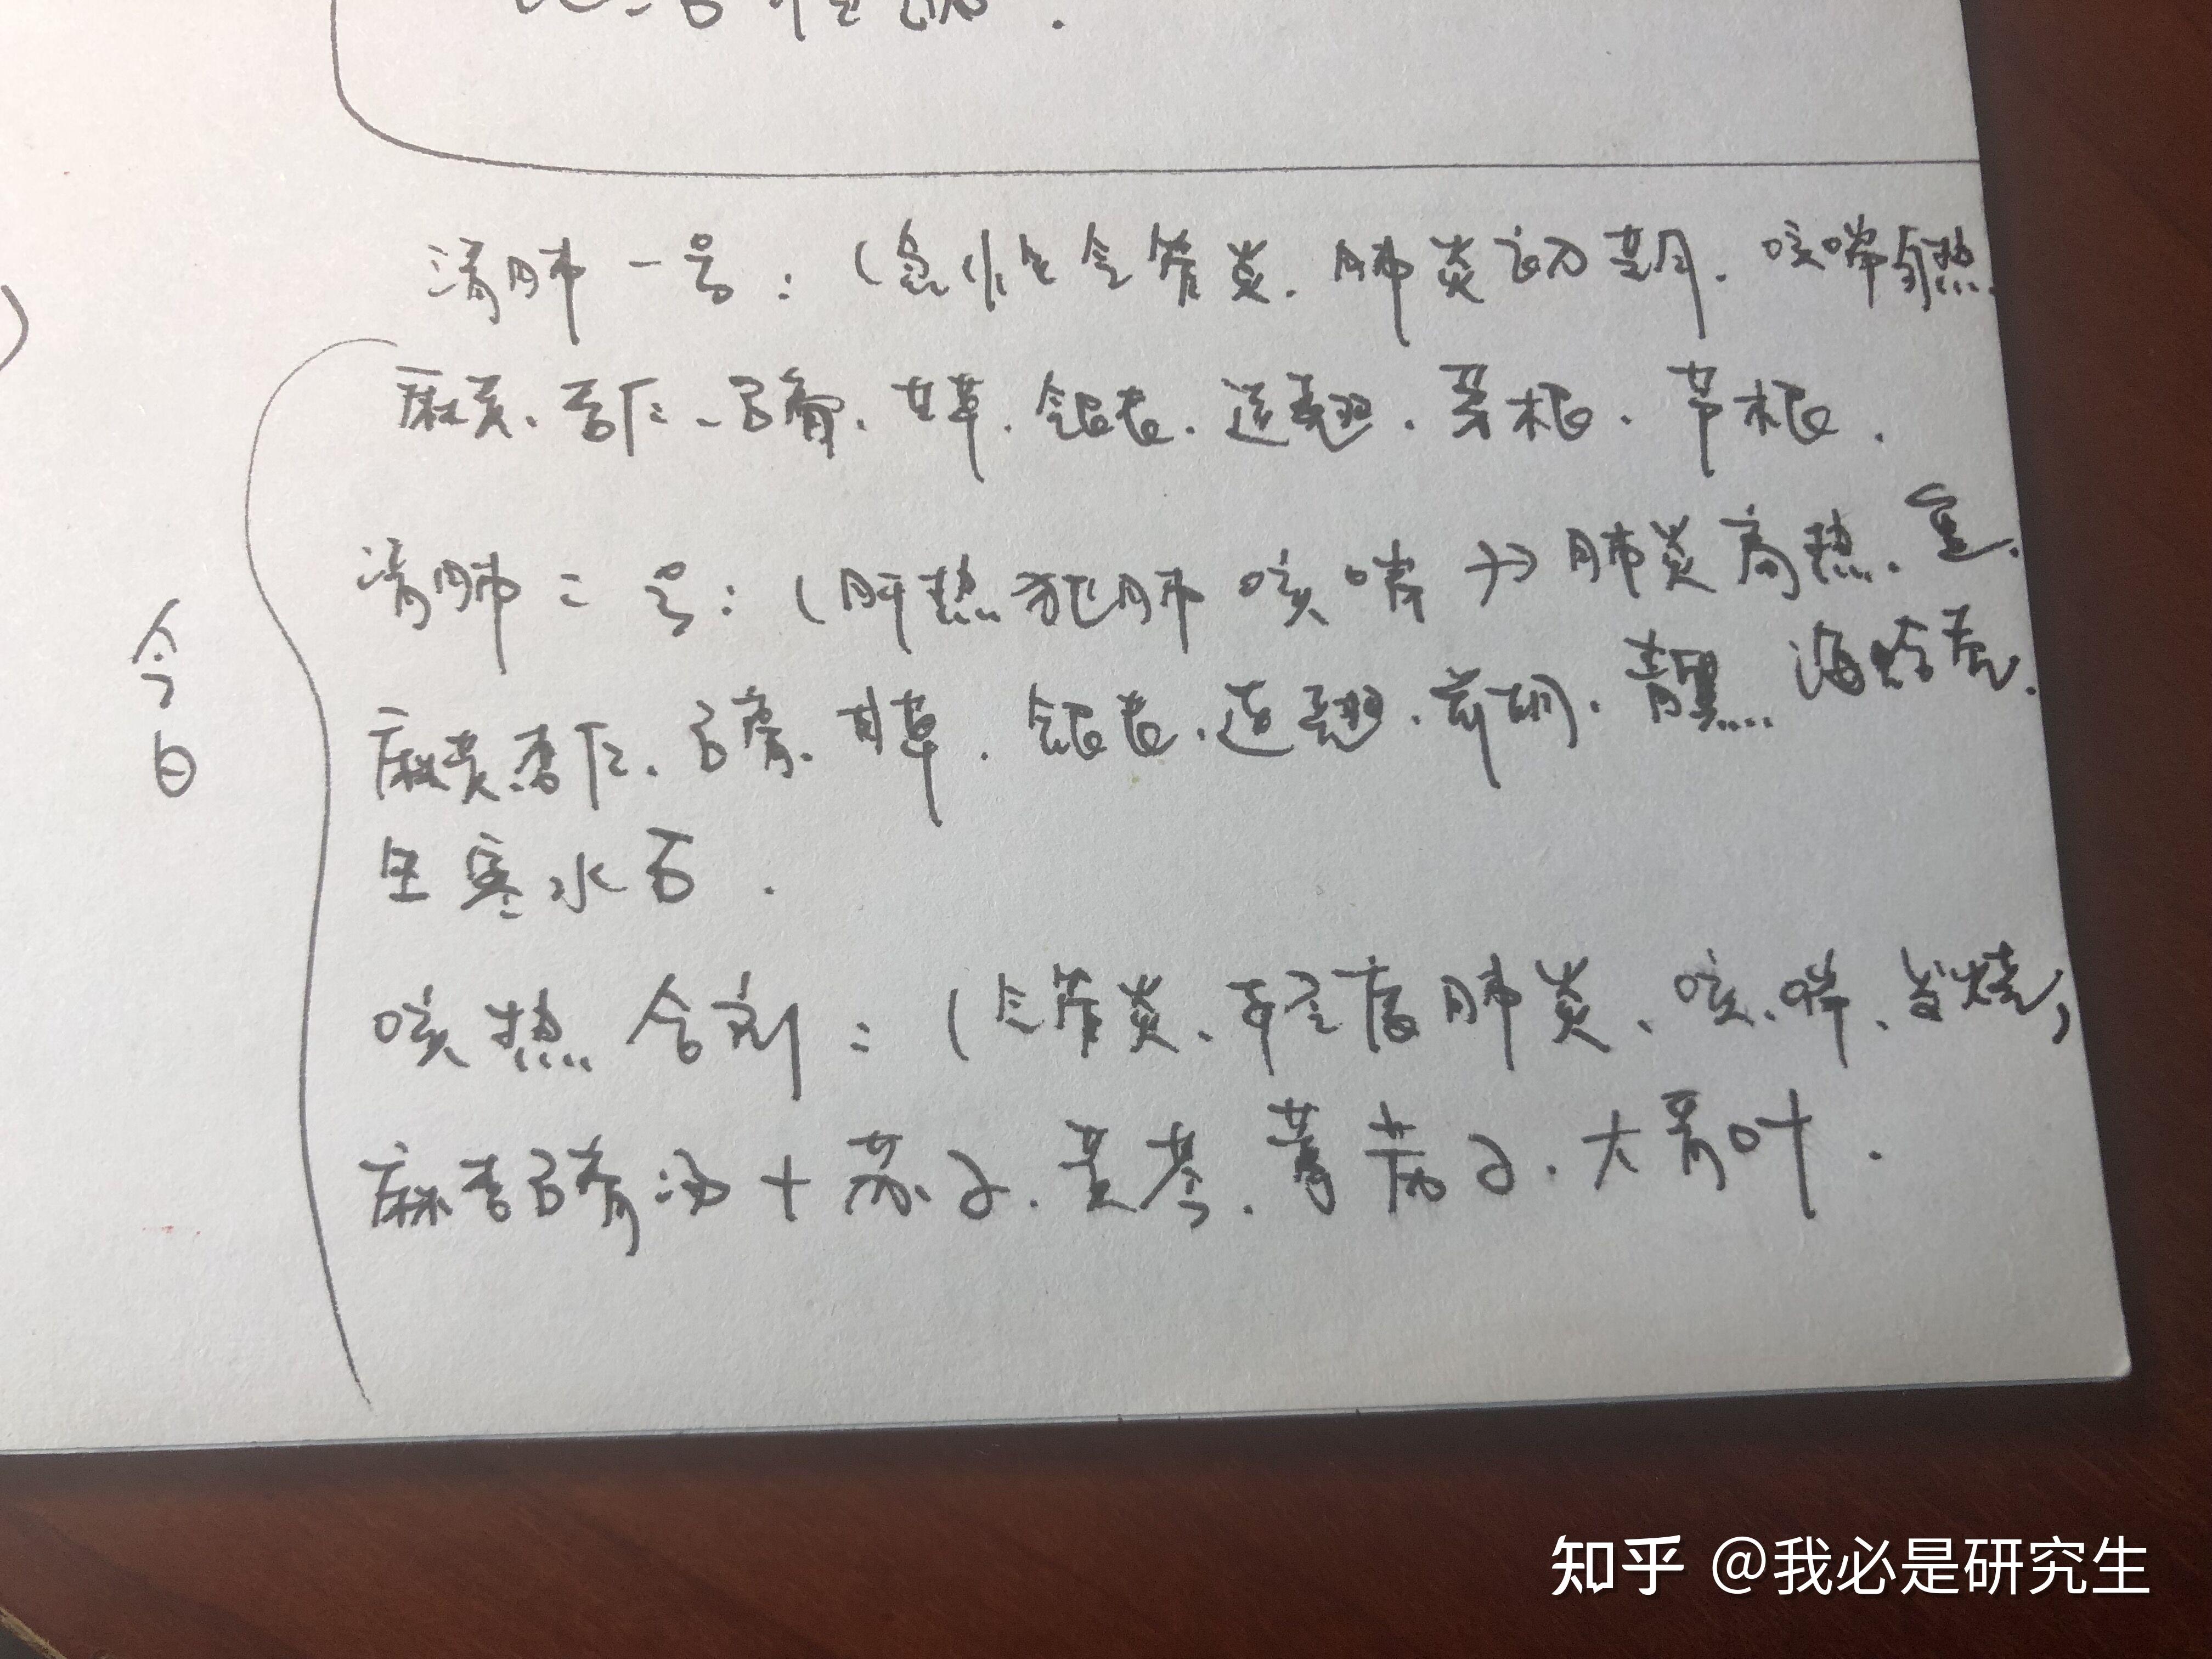 清肺一号：（急性气管炎.肺炎初期.咳喘身热.
麻黄、杏仁、石膏.甘草.银花.连翘.茅根.芦根.
清肺二号：（肝热犯肺咳喘→肺炎高热.
麻黄杏仁.石膏.甘草.银花.连翘.前胡.青黛..海蛤壳.
生寒水石.
今日
咳热合剂：（气管炎.轻度肺炎、咳.喘.发烧）
麻杏石膏汤+苏子.黄芩.葶苈子.大青叶.
知乎 @我必是研究生